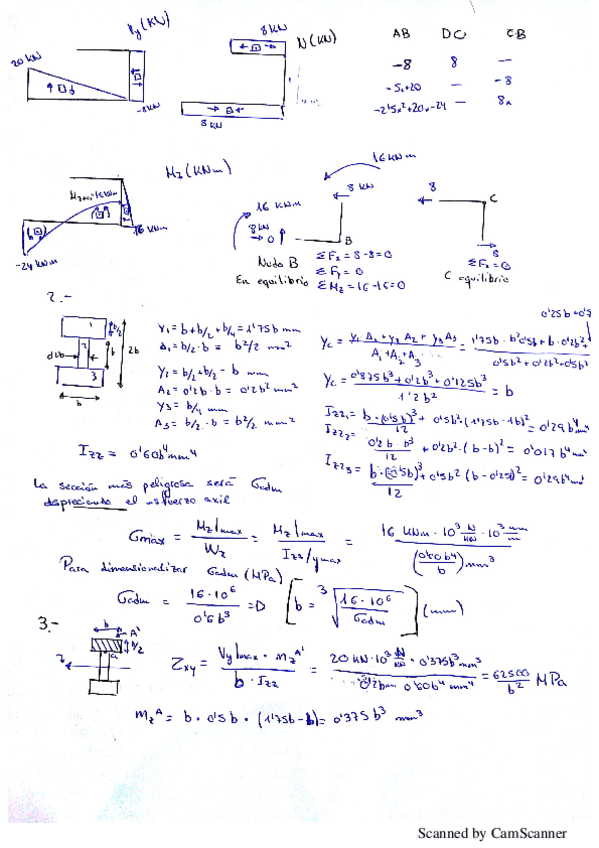 Vy(KN)
8 KN
N(KN)
AB DC CB
20 KN
-8 8 —
-5x+20 — -8
-2'5x²+20x-24 — 8x
-8KN
8 KN
Mz(KNm)
16 KNm
8 KN
8
C
16 KNm
8KN
B
16 KNm
-24 KNm
Nudo B
En equilibrio
ΣFx = 8-8=0
ΣFy = 0
ΣMz = 16-16=0
ΣFx = 0
C equilibrio
2.-
1
b/2
2b
b
3
b
Y1 = b+b/2+b/4 = 1'75b mm
A1 = b/2·b = b²/2 mm²
Y2 = b/2+b/2 = b mm
A2 = 0'2b·b = 0'2b² mm²
Y3 = b/4 mm
A3 = b/2·b = b²/2 mm²
Yc = (Y1 A1 + Y2 A2 + Y3 A3)/(A1+A2+A3)
Yc = (0'875b³+0'2b³+0'125b³)/(1'2b²) = b
Izz1 = b·(0'5b)³/12 + 0'5b²·(1'75b-1b)² = 0'29b⁴ mm⁴
Izz2 = 0'2b·b³/12 + 0'2b²·(b-b)² = 0'017b⁴ mm⁴
Izz3 = b·(0'5b)³/12 + 0'5b²(b-0'25)² = 0'29b⁴ mm⁴
Izz = 0'60b⁴ mm⁴
La sección más peligrosa será σadm
despreciando el esfuerzo axil
σmáx = Mz|max/Wz = Mz|max/(Izz/ymax) = 16 KNm·10³ N/KN·10³ mm/m/((0'60b⁴/b) mm³)
Para dimensionalizar σadm (MPa)
σadm = 16·10⁶/0'6b³ => [b = ³√(16·10⁶/σadm)] (mm)
3.-
b
A'
b/2
z
τxy = Vy|max·mz^A'/(b·Izz) = 20 KN·10³ N/KN·0'375b³ mm³/(0'2b mm·0'60b⁴ mm⁴) = 62500/b² MPa
mz^A = b·0'5b·(1'75b-b) = 0'375b³ mm³
Scanned by CamScanner